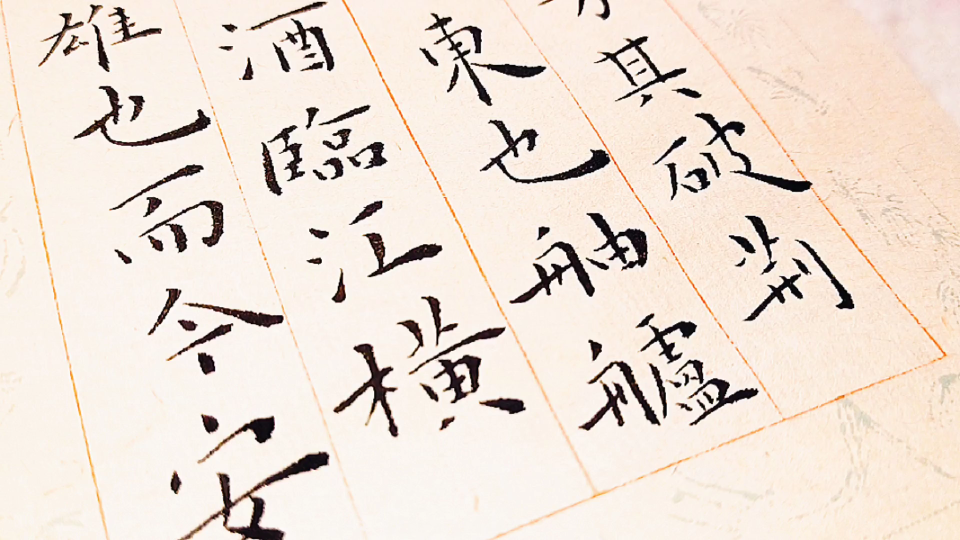 其破荊
東也舳艫
酒臨江橫
雄也而今安